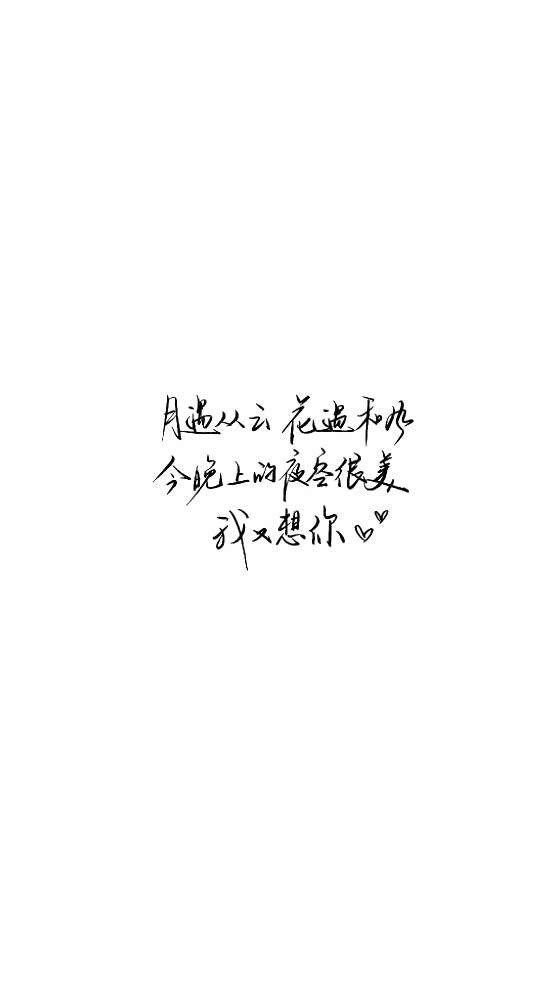 月遇从云 花遇和风
今晚上的夜空很美
我又想你